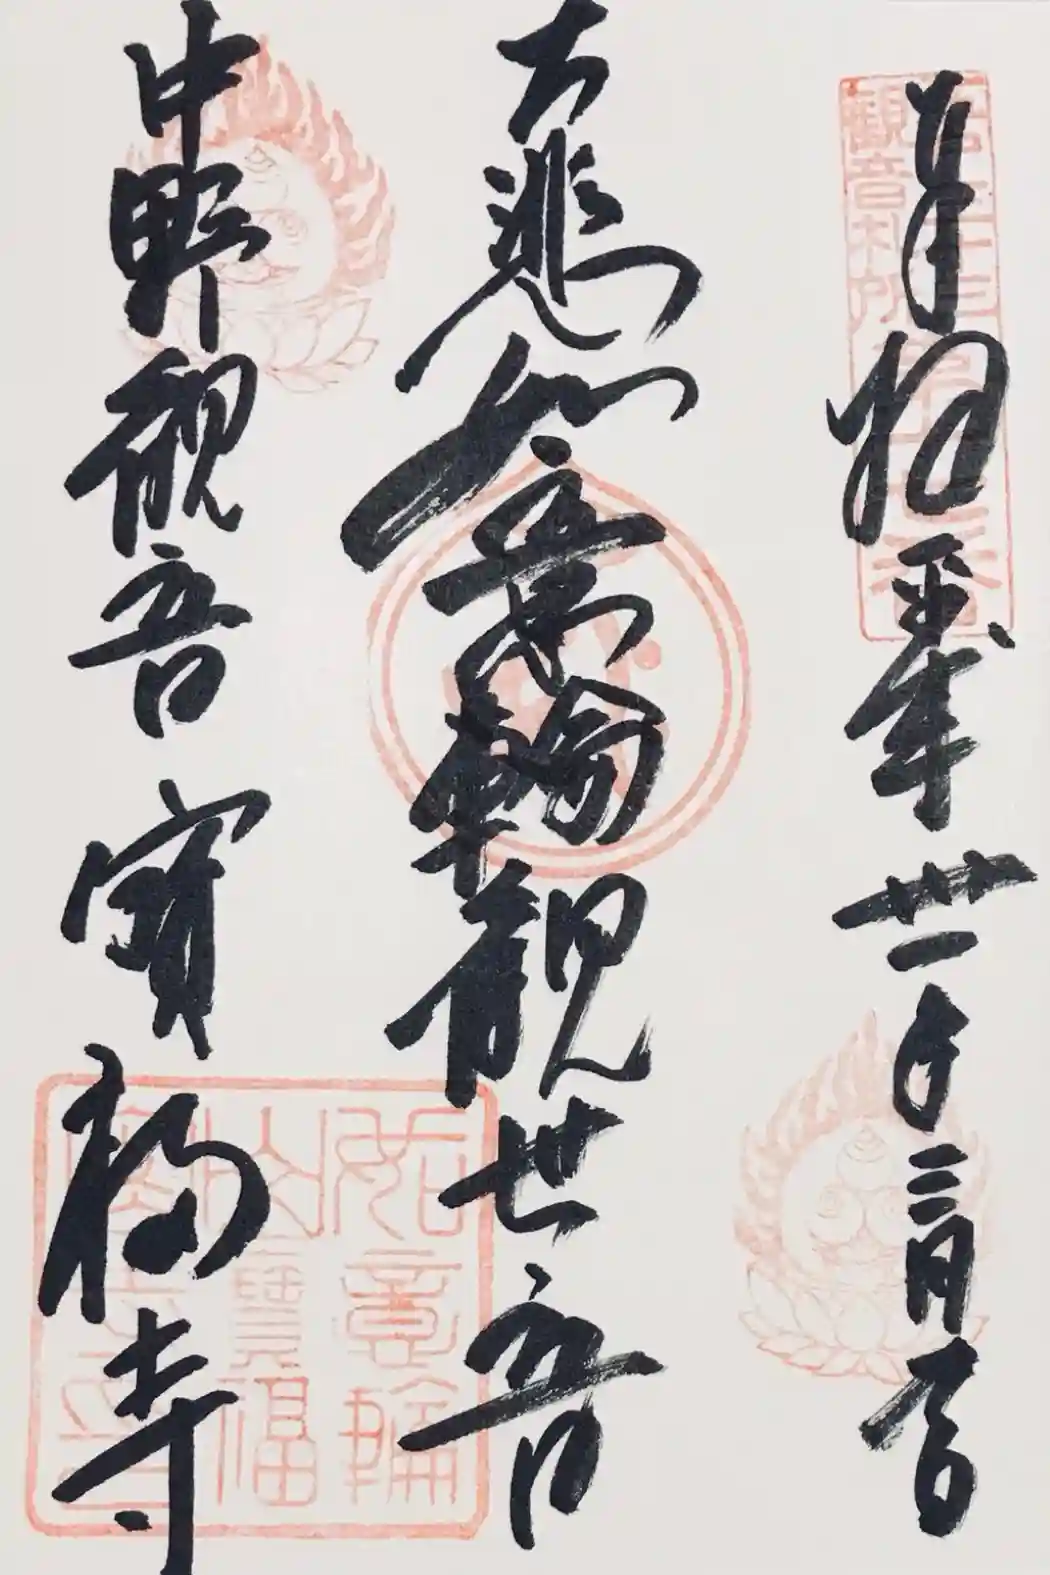 奉拝
平成卅一年三月吉日
観音札所
大悲如意輪観世音
中野観音 寶福寺
如意輪
山寶福